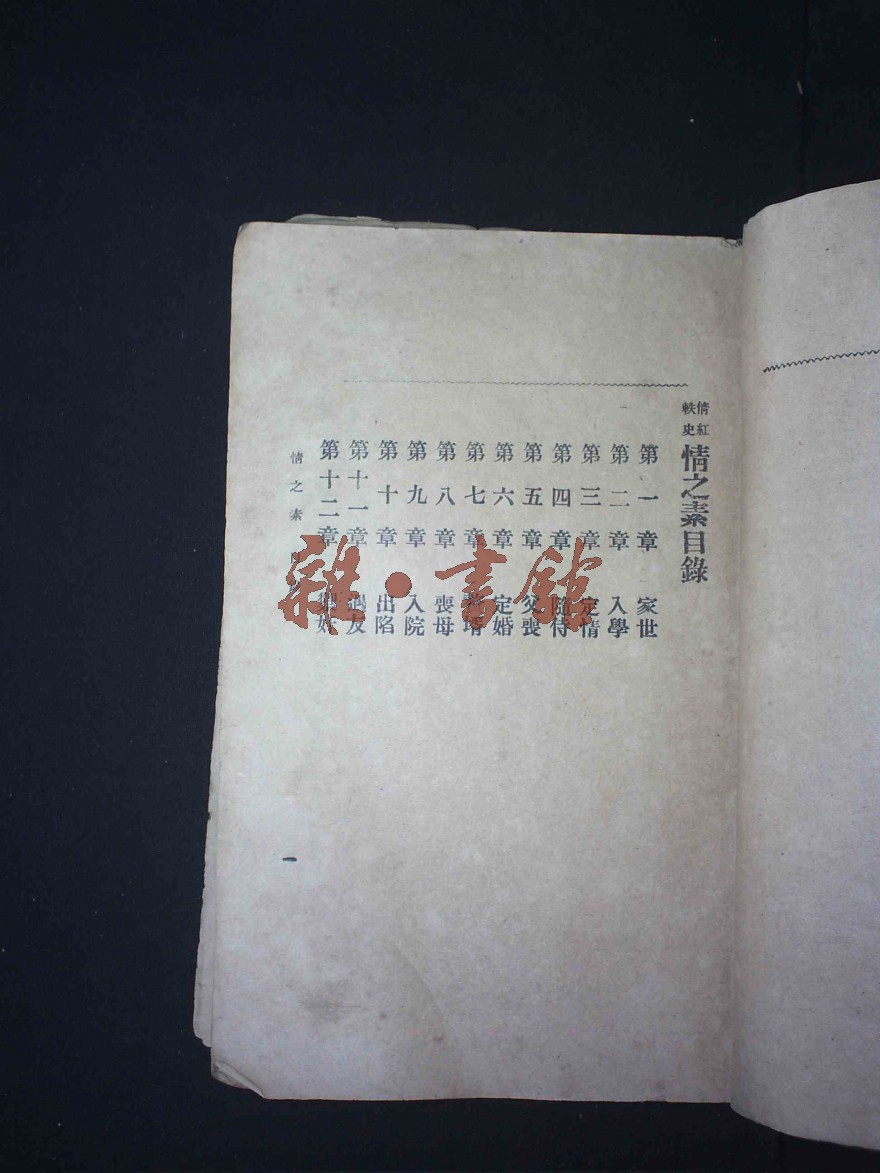 倩紅軼史
情之素目錄
第一章 家世
第二章 入學
第三章 定情
第四章 隨侍
第五章 喪
第六章 定婚
第七章
第八章 喪母
第九章 入院
第十章 出陷
第十一章 遇友
第十二章
情之素
一
雜·書館